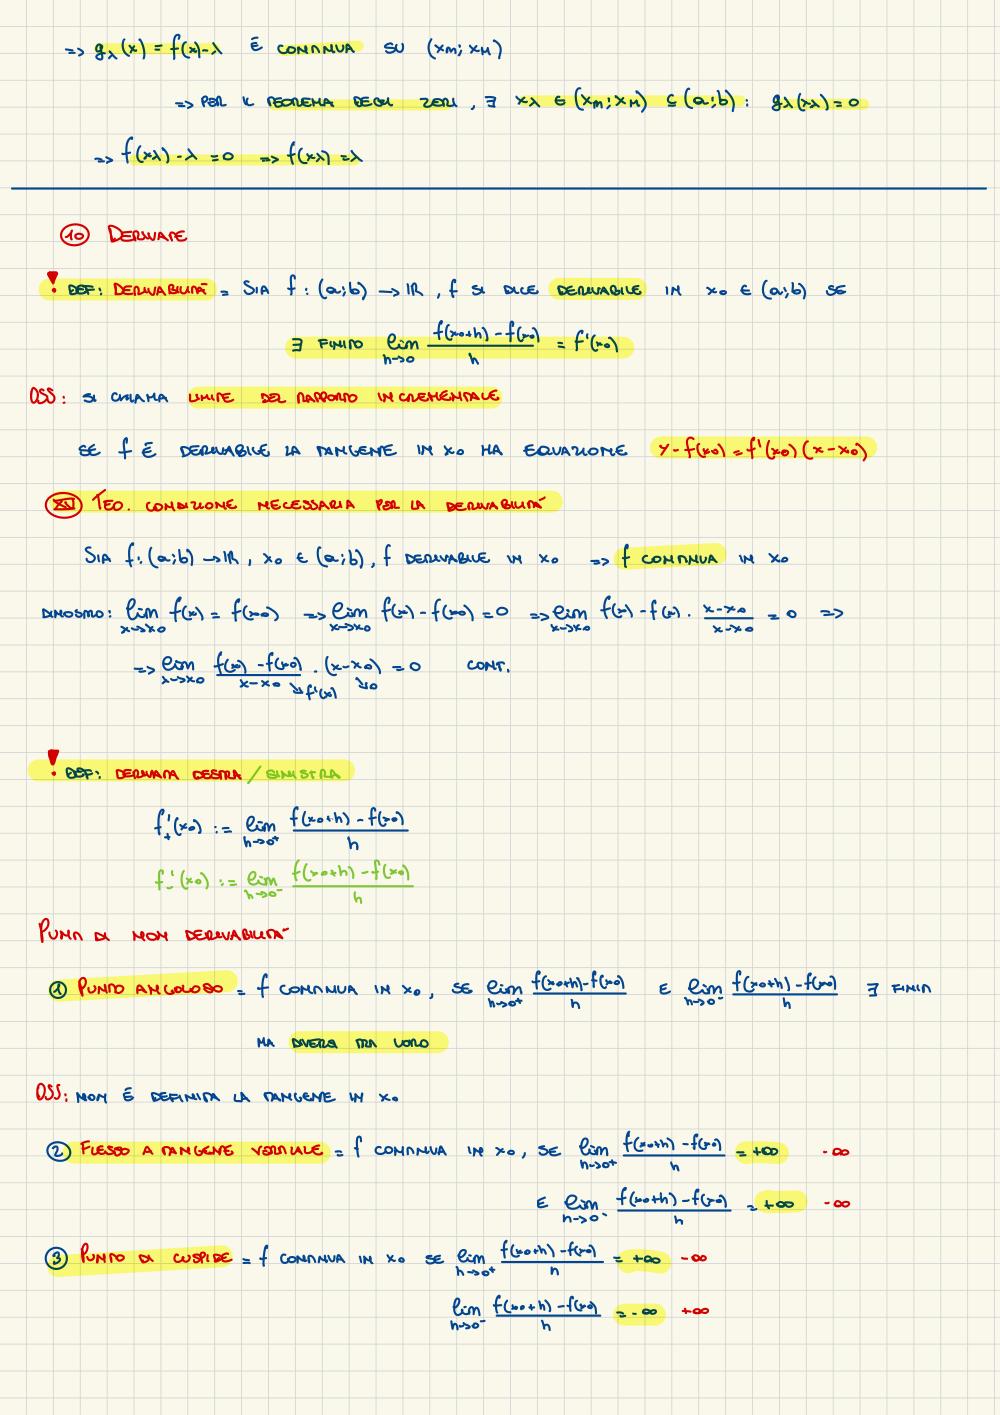 => gλ(x) = f(x)-λ È CONTINUA SU (xm; xM)
=> PER IL TEOREMA DEGLI ZERI, ∃ xλ ∈ (xm; xM) ⊆ (a;b): gλ(xλ) = 0
=> f(xλ) - λ = 0 => f(xλ) = λ
10 DERIVATE
! DEF: DERIVABILITÀ = SIA f: (a;b) → IR, f SI DICE DERIVABILE IN x0 ∈ (a;b) SE
∃ FINITO lim h→0 (f(x0+h) - f(x0))/h = f'(x0)
OSS: SI CHIAMA LIMITE DEL RAPPORTO INCREMENTALE
SE f È DERIVABILE LA TANGENTE IN x0 HA EQUAZIONE y - f(x0) = f'(x0)(x - x0)
XII TEO. CONDIZIONE NECESSARIA PER LA DERIVABILITÀ
SIA f: (a;b) → IR, x0 ∈ (a;b), f DERIVABILE IN x0 => f CONTINUA IN x0
DIMOSTRO: lim x→x0 f(x) = f(x0) => lim x→x0 f(x) - f(x0) = 0 => lim x→x0 f(x) - f(x0) · (x-x0)/(x-x0) = 0 =>
=> lim x→x0 (f(x) - f(x0))/(x-x0) · (x-x0) = 0 CONT.
↘ f'(x0) ↘ 0
! DEF: DERIVATA DESTRA / SINISTRA
f+'(x0) := lim h→0+ (f(x0+h) - f(x0))/h
f-'(x0) := lim h→0- (f(x0+h) - f(x0))/h
PUNTI DI NON DERIVABILITÀ
1 PUNTO ANGOLOSO = f CONTINUA IN x0, SE lim h→0+ (f(x0+h) - f(x0))/h E lim h→0- (f(x0+h) - f(x0))/h ∃ FINITI
MA DIVERSI TRA LORO
OSS: NON È DEFINITA LA TANGENTE IN x0
2 FLESSO A TANGENTE VERTICALE = f CONTINUA IN x0, SE lim h→0+ (f(x0+h) - f(x0))/h = +∞ -∞
E lim h→0- (f(x0+h) - f(x0))/h = +∞ -∞
3 PUNTO DI CUSPIDE = f CONTINUA IN x0 SE lim h→0+ (f(x0+h) - f(x0))/h = +∞ -∞
lim h→0- (f(x0+h) - f(x0))/h = -∞ +∞